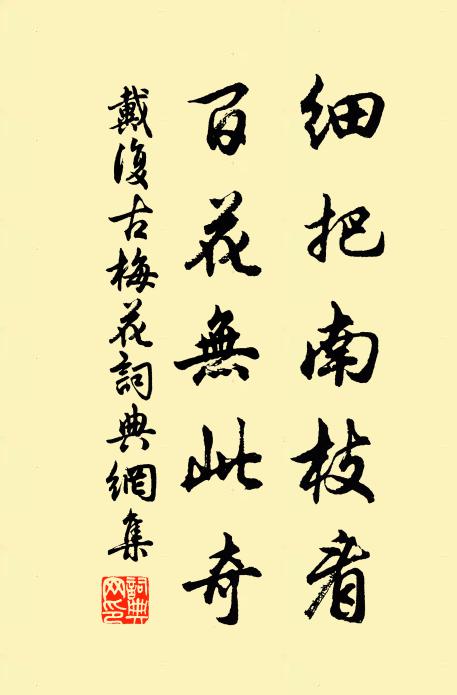 細把南枝看
百花無此奇
戴復古梅花詞典網集
詞典網印